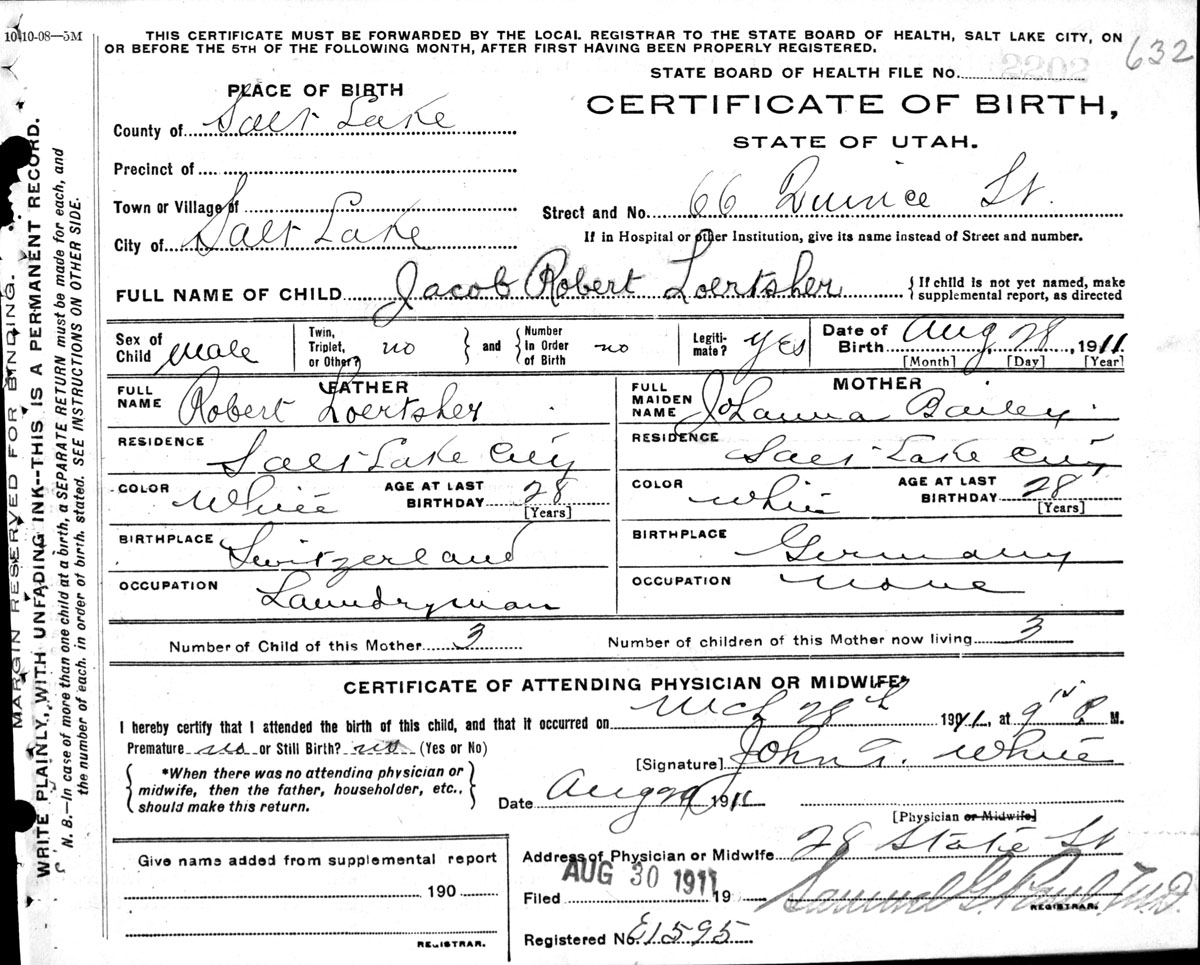 10-10-08—5M
THIS CERTIFICATE MUST BE FORWARDED BY THE LOCAL REGISTRAR TO THE STATE BOARD OF HEALTH, SALT LAKE CITY, ON
OR BEFORE THE 5TH OF THE FOLLOWING MONTH, AFTER FIRST HAVING BEEN PROPERLY REGISTERED.
632
STATE BOARD OF HEALTH FILE NO. 2202
PLACE OF BIRTH
CERTIFICATE OF BIRTH,
County of Salt Lake
STATE OF UTAH.
Precinct of
Town or Village of
Street and No. 66 Quince St.
City of Salt Lake
If in Hospital or other Institution, give its name instead of Street and number.
FULL NAME OF CHILD Jacob Robert Loertsher
{If child is not yet named, make
supplemental report, as directed
Sex of Child Male
Twin, Triplet, or Other? no
and
Number In Order of Birth no
Legiti-mate? yes
Date of Birth Aug 28, 1911
[Month] [Day] [Year]
FATHER
FULL NAME Robert Loertsher
RESIDENCE Salt Lake City
COLOR White
AGE AT LAST BIRTHDAY 28
[Years]
BIRTHPLACE Switzerland
OCCUPATION Laundryman
MOTHER
FULL MAIDEN NAME Johanna Bailey
RESIDENCE Salt Lake City
COLOR White
AGE AT LAST BIRTHDAY 28
[Years]
BIRTHPLACE Germany
OCCUPATION None
Number of Child of this Mother 3
Number of children of this Mother now living 3
CERTIFICATE OF ATTENDING PHYSICIAN OR MIDWIFE*
I hereby certify that I attended the birth of this child, and that it occurred on 28th 1911, at 9 P. M.
Premature no or Still Birth? no (Yes or No)
[Signature] John T. White
*When there was no attending physician or
midwife, then the father, householder, etc.,
should make this return.
Date Aug 29 1911
[Physician or Midwife]
Address of Physician or Midwife 28 State St
Give name added from supplemental report
190
REGISTRAR.
AUG 30 1911
Filed 19
Samuel G. Paul, M.D.
REGISTRAR.
Registered No. E1595
MARGIN RESERVED FOR BINDING.
WRITE PLAINLY, WITH UNFADING INK--THIS IS A PERMANENT RECORD.
N. B.—In case of more than one child at a birth, a SEPARATE RETURN must be made for each, and
the number of each, in order of birth, stated. SEE INSTRUCTIONS ON OTHER SIDE.